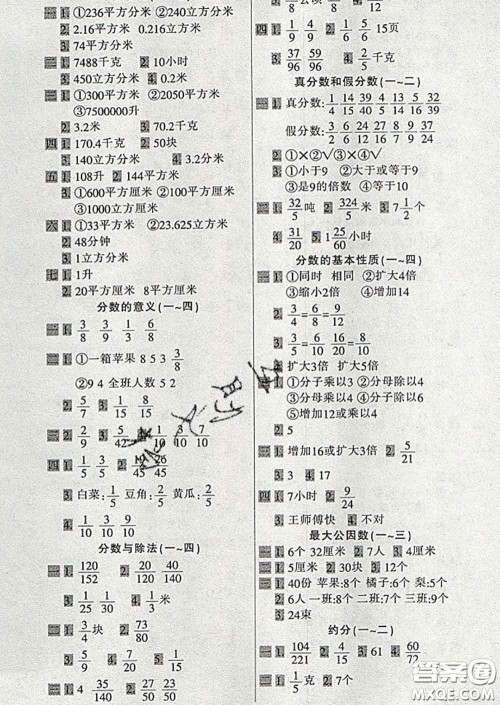 ①236平方分米 ②240立方分米
2. 2.16平方米 0.216立方米
3. 74平方分米
1. 7488千克 2. 10小时
3. 450立方分米 4. 0.2米
1. ①300平方米 ②2050平方米
③7500000升
2. 3.2米 3. 70.2千克
四 1. 170.4千克 2. 50块
3. 140立方分米 4. 3.2分米
五 1. 108升 2. 144平方米
3. ①600平方厘米 ②100平方厘米
③1000立方厘米
六 1. ①33平方米 ②23.625立方米
2. 48分钟
3. 1立方分米
七 1. 1升
2. 20平方厘米 8平方厘米
分数的意义(一~四)
一 1. 1/3 3/4 1/3 6/8
二 1. ①一箱苹果 8 5 3 3/8
②9 4 全班人数 5 2
2. 5/7 3. 1/15 8/15
2/9 5/42 1/10 3/10 7/10
四 1. 1/5 4/5 26/45
3. 白菜:1/5 豆角:2/5 黄瓜:2/5
4. 1/10 3/10 9/10
分数与除法(一~四)
一 1. 120/152 2. 20/140 20/40
3. 1/4米 1/30
1. 3/4块 2. 73/80
3. 5/7 4. 4/9 5/9
1. 4 35/140 2. 27/50 23/50
四 1. 1/9 5/9 2. 4/15 2/15 15页
3. 37/96 59/96 4. 2/4千克
真分数和假分数(一~二)
一 1. 真分数:1/4 14/15 39/40 5/14 32/39
假分数:3/2 6/6 24/12 27/26 39/38 8/7
2. ①×②√③×④√
3. ①小于9 ②大于或等于9
③是9的倍数 ④小于4
二 1. 32/5吨 2. 324/5米 3. 7 1/2个
4. 31/20 5. 1 21/25小时
分数的基本性质(一~四)
一 1. ①同时 相同 ②扩大4倍
③缩小2倍 ④增加14
2. 3/4=6/8 3. 8/6=16/12=8/10
4. 扩大3倍 扩大5倍
1. ①分子乘以3 ②分母除以4
③分子除以6 ④分母乘以5
⑤增加12或乘以4
2. 2/3
1. 增加16或扩大3倍 2. 5/21
3. 3 4. 17
四 1. 7小时 2. 9/24
3. 王师傅快 4. 不对
最大公因数(一~三)
一 1. 6个 32厘米 2. 7人 3. 4厘米
二 1. 5厘米 2. 30米 3. 12厘米
1. 40份 苹果:8个 橘子:6个 梨:5个
2. 6人 一班:8个 二班:7个 三班:9个
3. 24束
约分(一~二)
一 1. 104/221 2. 4/15 3. 61 4. 60/72
二 1. 1/5克 2. 7个
答案圈
MXQE.COM